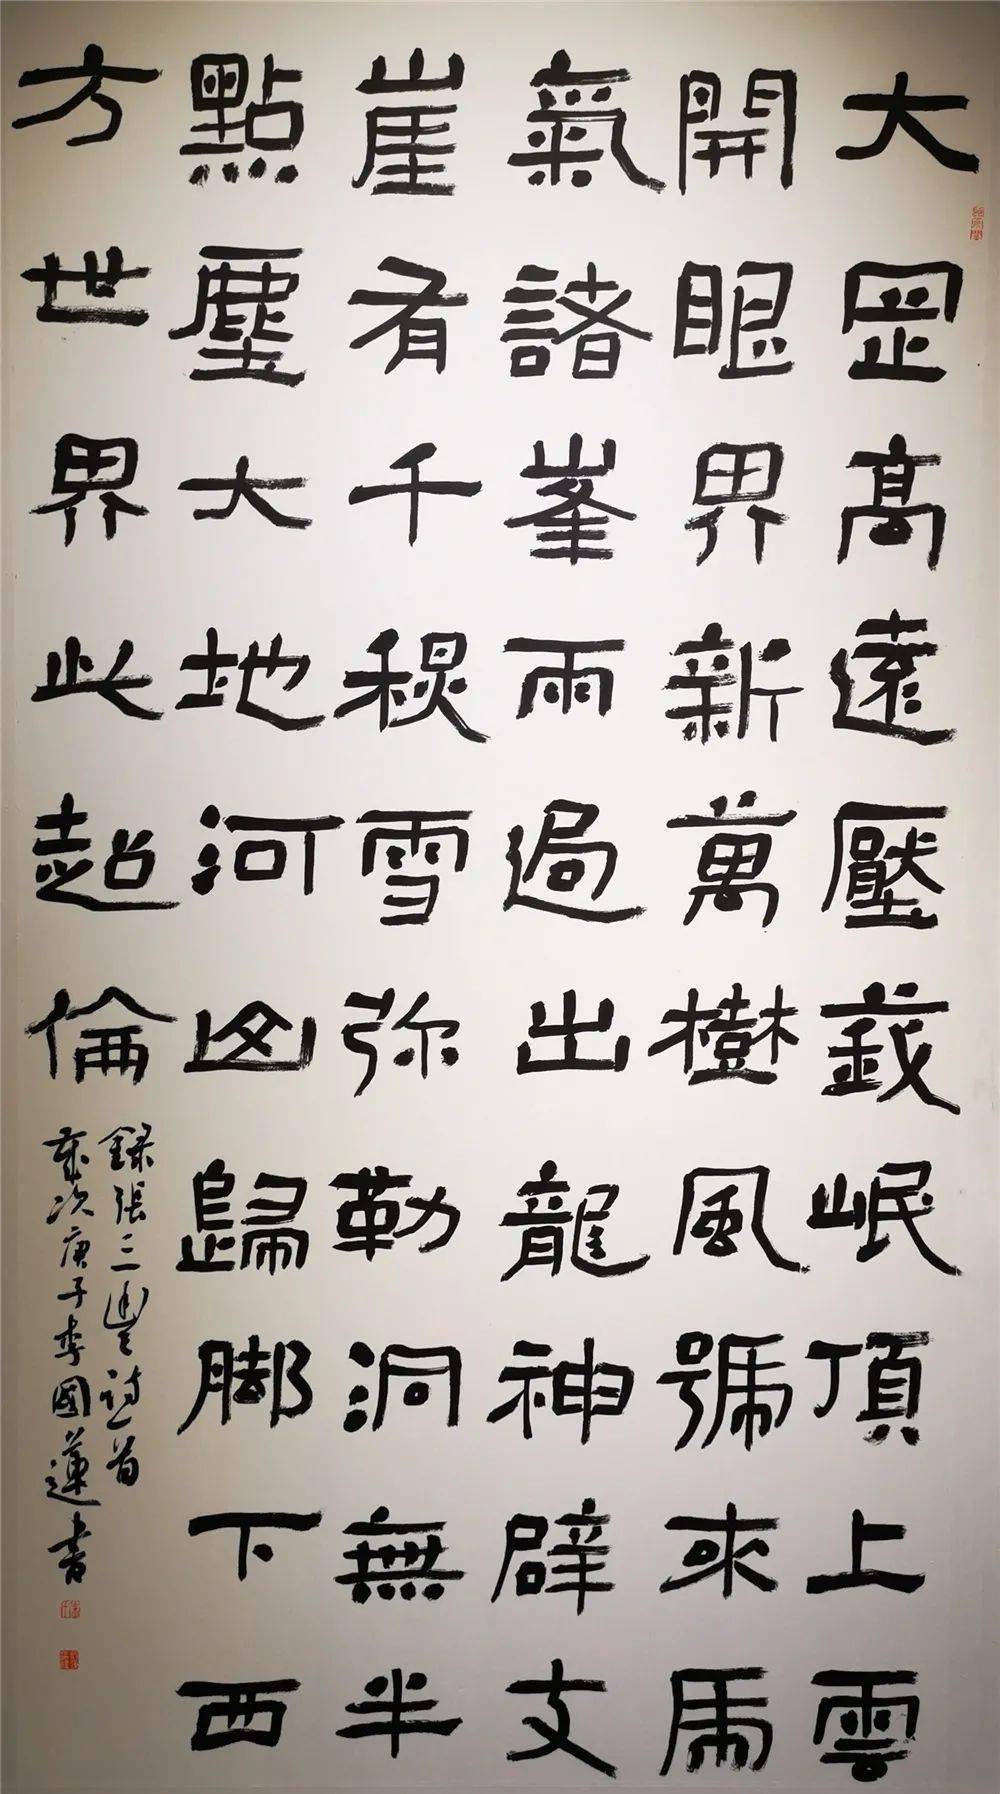 大罡高遠壓峩岷頂上雲
開眼界新萬樹風號來虎
氣諸峯雨過出龍神辟支
崖有千秋雪弥勒洞無半
點塵大地河山歸脚下西
方世界此超倫
錄張三豐詩一首
歲次庚子李國蓮書